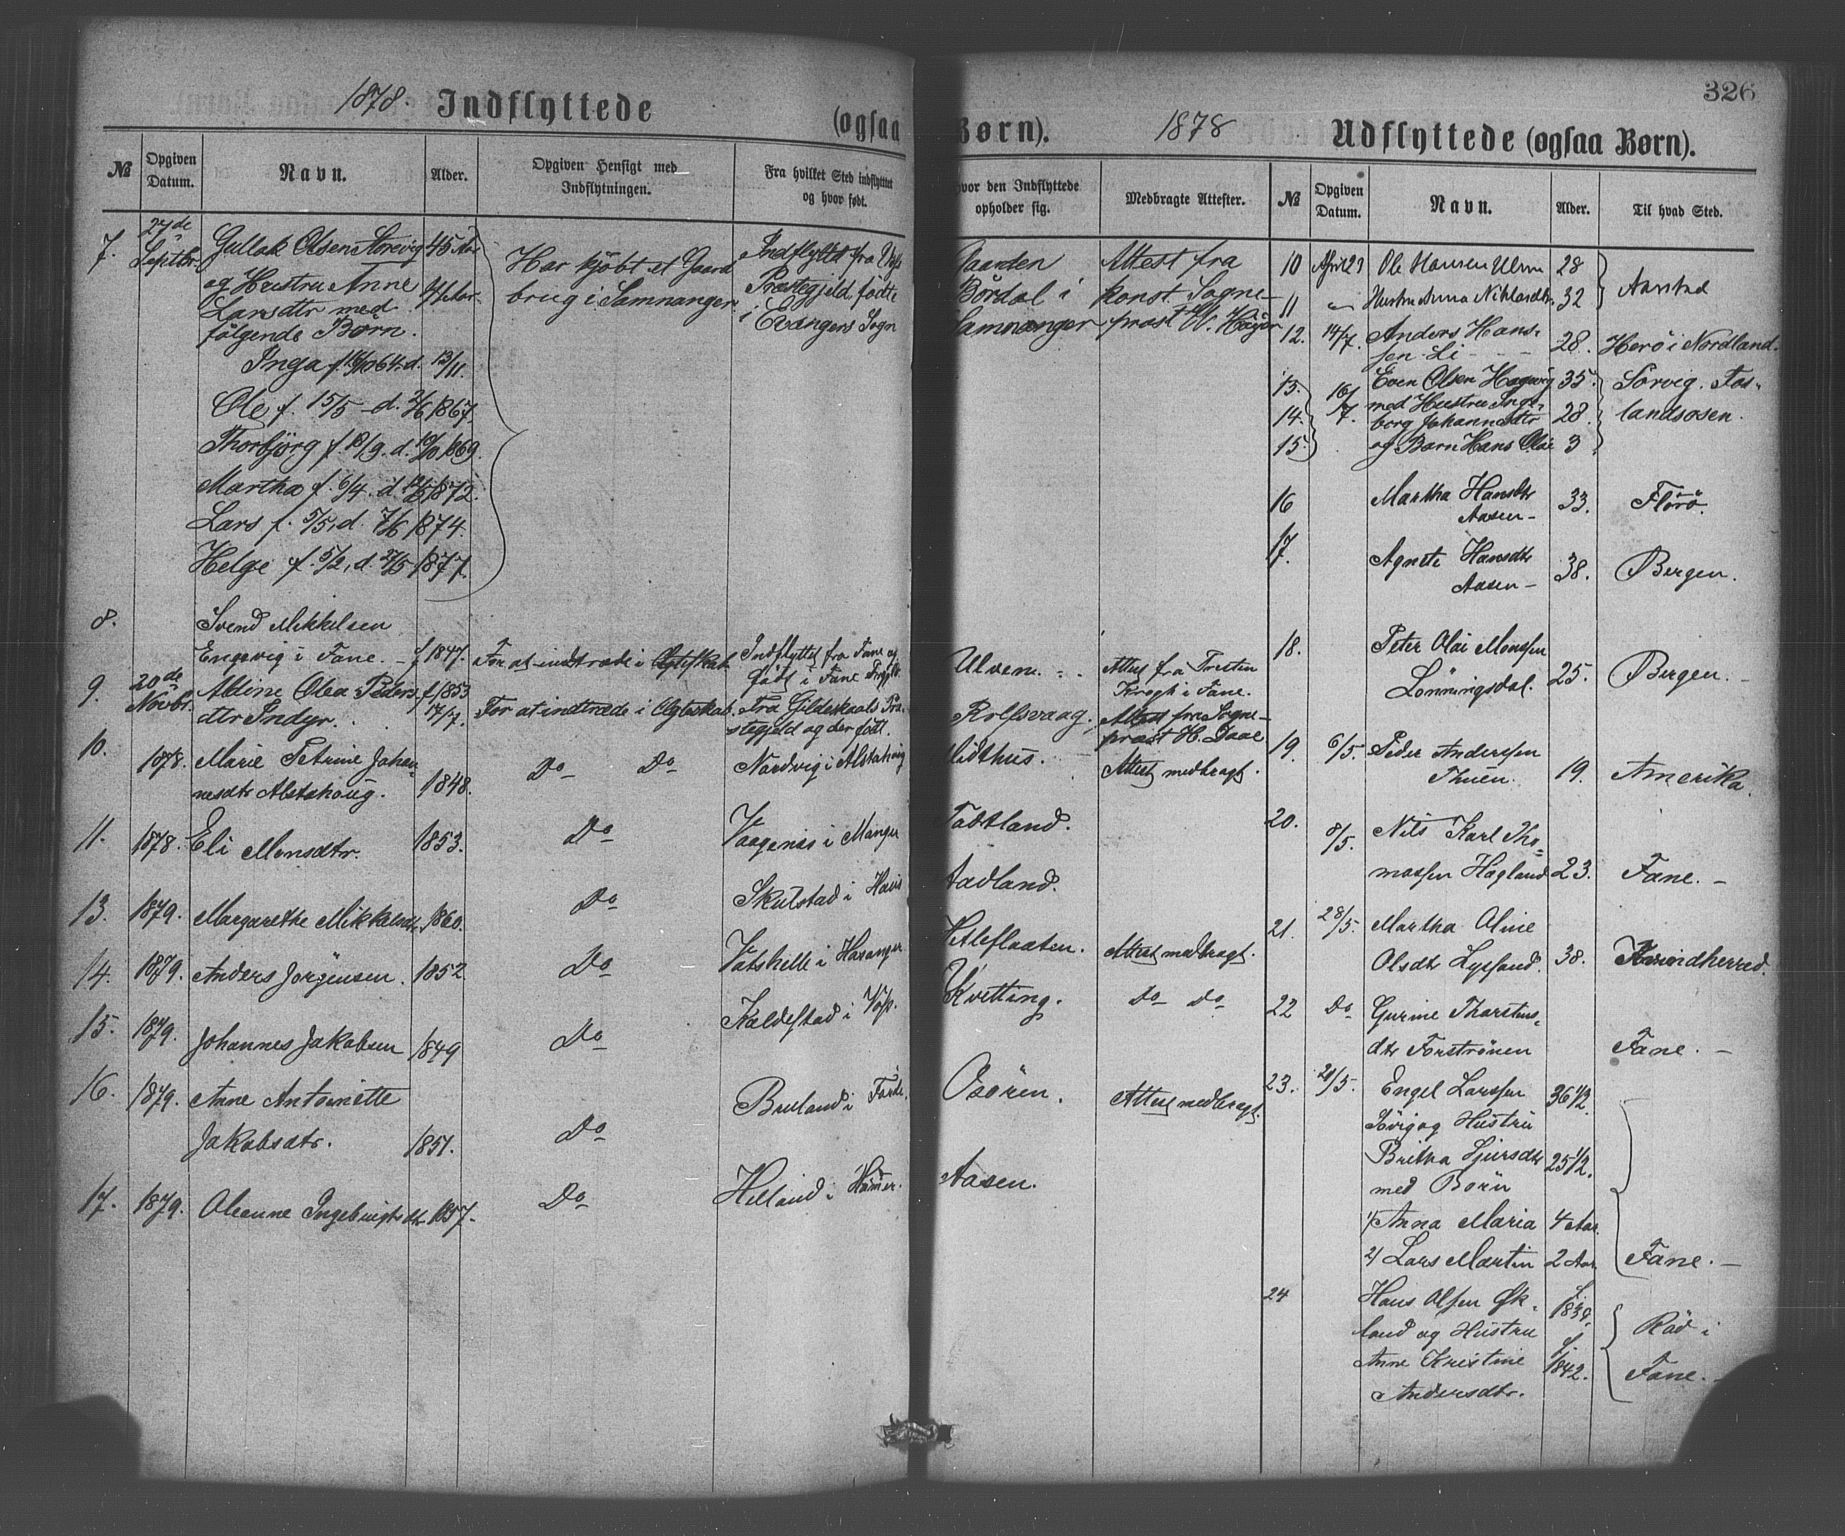 326
1878. Indflyttede (ogsaa Børn).
№
Opgiven Datum.
Navn.
Alder.
Opgiven Hensigt med Indflytningen.
Fra hvilket Sted indflyttet og hvor født.
hvor den Indflyttede opholder sig.
Medbragte Attester.
7. 27de Septbr.
Gullak Olsen Storevig 45 Aar
og Hustru Anne
Larsdtr med
følgende Børn.
Inga
Ole f. 15/5 d. 1867.
Thorbjørg f. 18/9. d. 1869.
Martha f. 6/4. d. 1872.
Lars f. 5/5, d. 1874.
Helge f. 5/2, d. 1877.
Har kjöbt et Gaard
brug i Samnanger.
Indflyttet fra
Præstegjeld, födte
i Evangers Sogn
Gaarden
Bördal i
Samnanger
Attest fra
konst. Sogne-
præst
8. Svend Mikkelsen
Engevig i Fane. f 1847.
For at indtræde i Ægteskab
Indflyttet fra Fane og
födt i Fane
Ulven.
Attest fra Presten
Krogh i Fane.
9. 20de Novbr.
Aldine Olea Peders-
dtr Indyr. f 1853 17/7.
For at indtræde i Ægteskab.
Fra Gildeskaals Præ-
stegjeld og der födt.
Rolfsvaag.
Attest fra Sogne-
præst H. Daae
10. 1878. Marie Petrine Johan-
nesdtr Alstahoug. 1848.
Do Do
Nordvig i Alstahoug
Midthus.
Attest medbragt.
11. 1878. Eli Monsdtr. 1853.
Do
Vaagenes i Manger
Tadtland.
13. 1879. Margarethe Mikkelsdtr. 1860.
Do
Skulstad i
Aadland.
14. 1879. Anders Jörgensen. 1852
Do
Vatshelle i
Hetleflaaten.
Attest medbragt.
15. 1879. Johannes Jakobsen 1849
Do
Kaldestad i Voss.
Kvitting.
Do Do
16. 1879. Anne Antoinette
Jakobsdtr. 1851.
Do
Bruland i Förde.
Osören.
Attest medbragt.
17. 1879. Oleanne Ingebrigtsdtr 1857.
Do
Helland i Hammer.
Aasen.
1878 Udflyttede (ogsaa Børn).
№
Opgiven Datum.
Navn.
Alder.
Til hvad Sted.
10 April 23 Ole Hansen Ulven 28
11 Hustru Anna Niklasdtr 32
Aarstad
12. 14/7. Anders Hans-
sen Li 28. Herö i Nordland.
13. Even Olsen Hagevig 35.
14. 16/7. med Hustru Inge-
borg Johannesdtr 28.
15. og Barn Hans Olai 3
Sorvig. Fos-
landsosen.
16 Martha Hansdtr
Aasen 33. Florö.
17. Agnete Hansdtr
Aasen 38. Bergen.
18. Peter Olai Monssen
Lönningsdal. 25. Bergen.
19. 6/5. Peder Anderssen
Thuen. 19. Amerika.
20. 8/5. Nils Karl Tho-
massen Hagland 23. Fane.
21. 28/5. Martha Oline
Olsdtr Lysesand. 38. Kvindherred.
22 Do Gurine Thorstens-
dtr Forströnen Fane.
23. 21/5. Engel Larssen 36 1/2.
Sörvig og Hustru
Britha Sjursdtr 25 1/2.
med Børn
1/ Anna Maria 4 Aar.
2/ Lars Martin 2 Aar
Fane.
24 Hans Olsen Øk- f. 1839.
land og Hustru
Anne Kristine f. 1842.
Andersdtr.
Röd i
Fane.